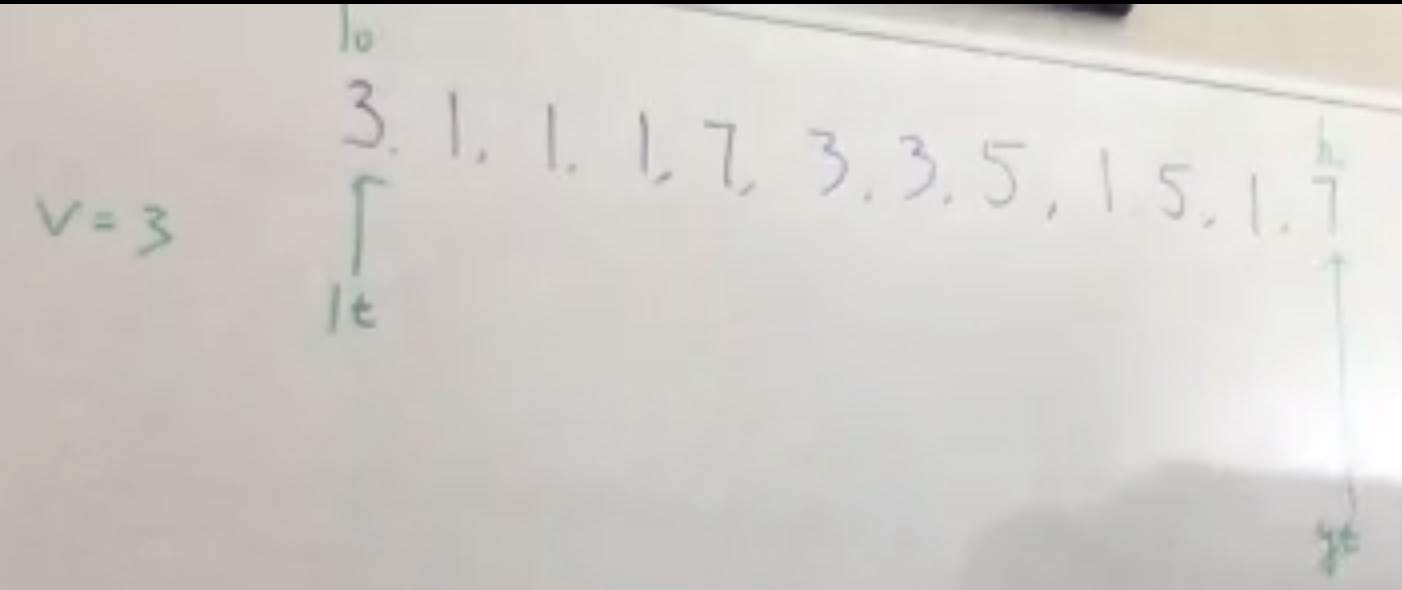 lo
3. 1, 1. 1, 7, 3, 3, 5, 1 5, 1. 7
V = 3
lt
gt